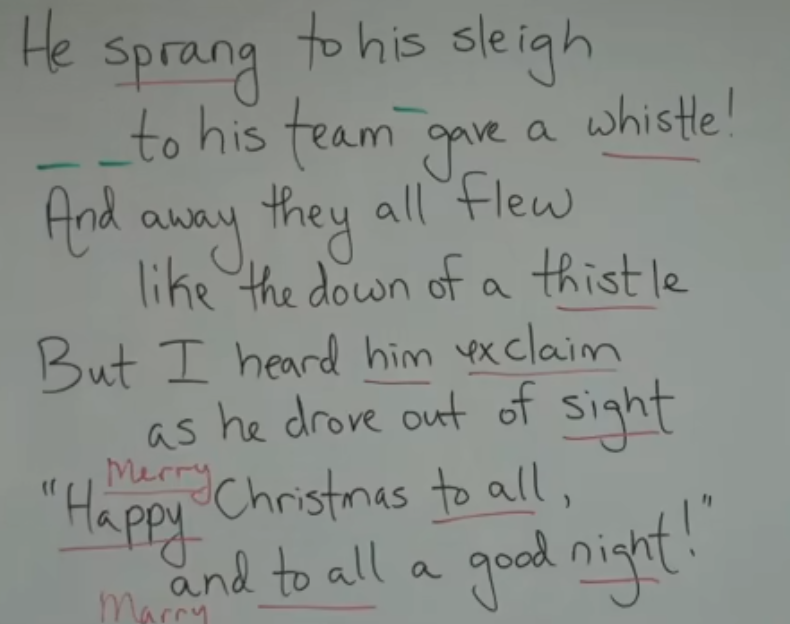 He sprang to his sleigh
_ _ to his team - gave a whistle!
And away they all flew
like the down of a thistle
But I heard him exclaim
as he drove out of sight
Merry
"Happy Christmas to all,
and to all a good night!"
Marry